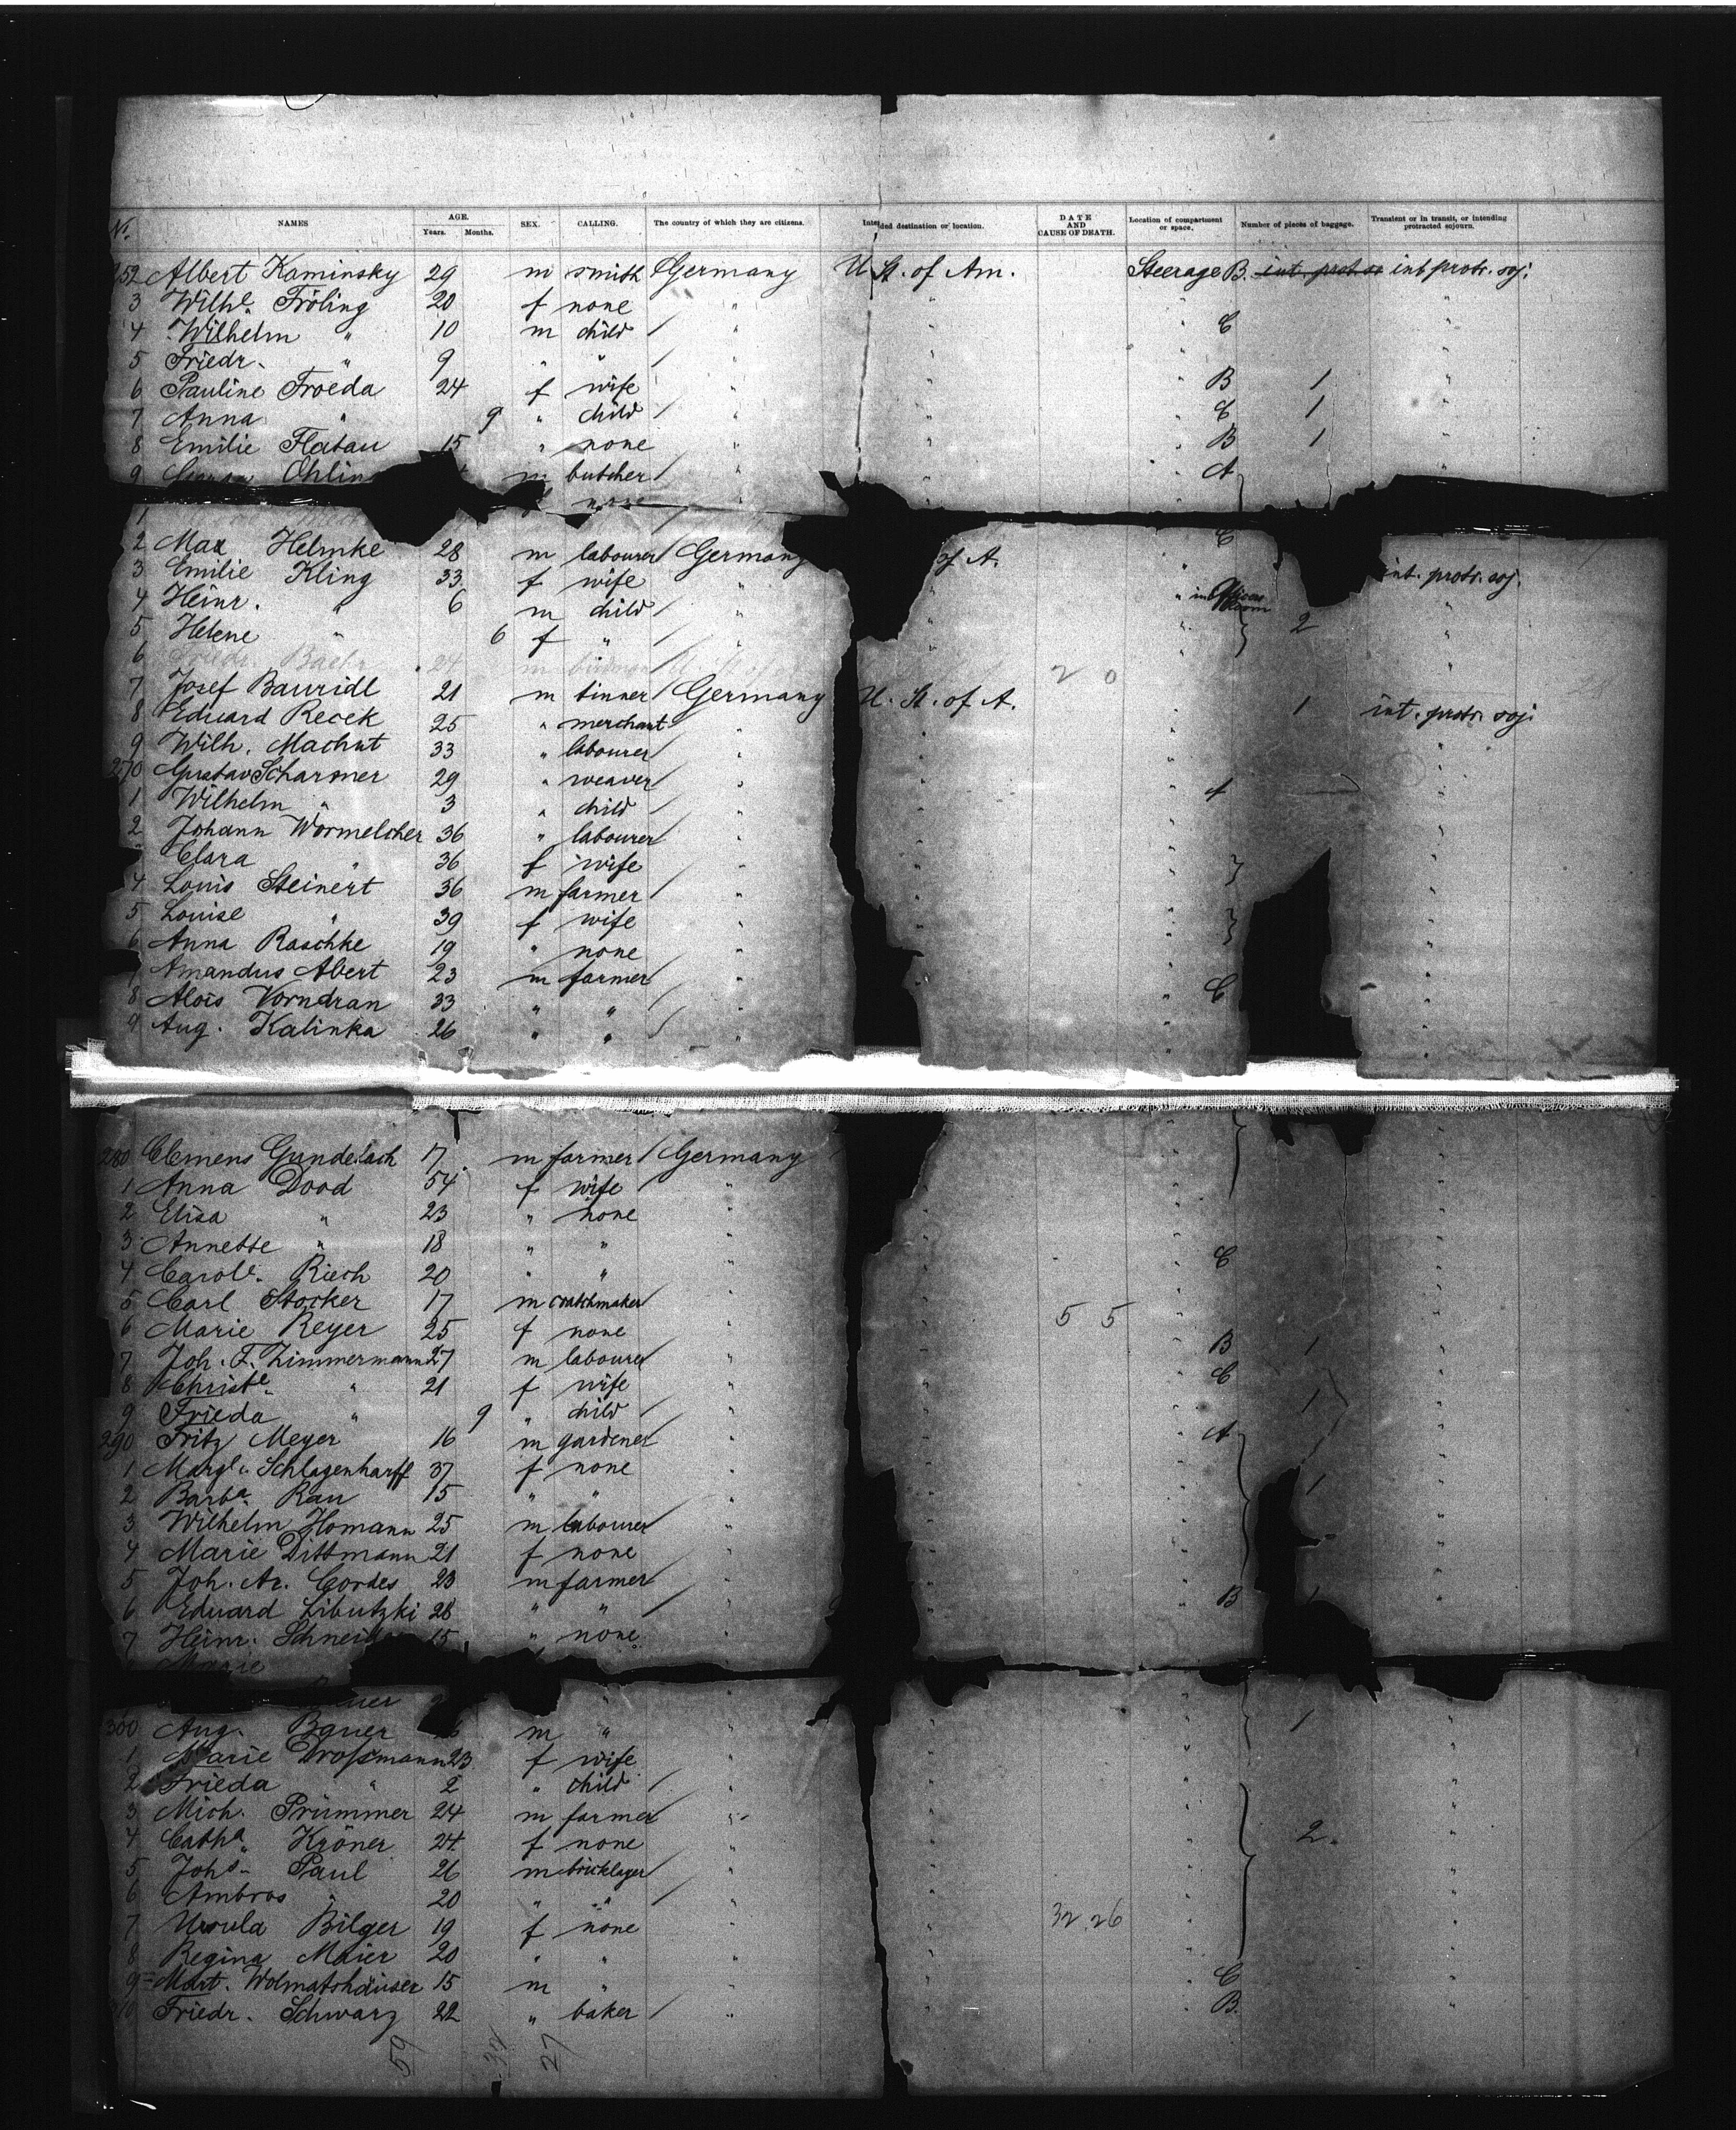 No. NAMES AGE. Years. Months. SEX. CALLING. The country of which they are citizens. Intended destination or location. DATE AND CAUSE OF DEATH. Location of compartment or space. Number of pieces of baggage. Transient or in transit, or intending protracted sojourn.
252 Albert Kaminsky 29 m smith Germany U. St. of Am. Steerage B. int. prot. so int protr. soj.
3 Wilhe. Fröling 20 f none / " " " "
4 Wilhelm " 10 m child / " " " C "
5 Friedr. " 9 " " / " " " "
6 Pauline Froeda 24 f wife " " " B 1 "
7 Anna " 9 " child / " " " C 1 "
8 Emilie Flatau 15 " none " " " B 1 "
9 Ohlin m butcher / " " " A "
1 none
2 Max Helmke 28 m labourer / Germany of A. " C int. protr. soj.
3 Emilie Kling 33 f wife / " " " in "
4 Heinr. " 6 m child / " " " 2 "
5 Helene " 6 f " / " " " "
6 Friedr. Baehr 24 m 2 0
7 Josef Bauridl 21 m tinner / Germany U. St. of A. 1 int. protr. soj.
8 Eduard Recek 25 " merchant / " " " "
9 Wilh. Machut 33 " labourer / " " " "
270 Gustav Scharmer 29 " weaver / " " " "
1 Wilhelm " 3 " child / " " " "
2 Johann Wormelcher 36 " labourer / " " " "
Clara " 36 f wife " " " "
4 Louis Steinert 36 m farmer / " " " "
5 Louise " 39 f wife " " " "
6 Anna Raschke 19 " none " " " "
Amandus Abert 23 m farmer / " " " "
8 Alois Vorndran 33 " " / " " " C "
9 Aug. Kalinka 26 " " / " " " "
280 Clemens Gundelach 17 m farmer / Germany " " "
1 Anna Dood 54 f wife / " " " "
2 Elisa " 23 " none " " " "
3 Annette " 18 " " " " " "
4 Carole. Riech 20 " " " " " C "
5 Carl Stocker 17 m watchmaker / " " " "
6 Marie Reyer 25 f none " " 5 5 " "
7 Joh. F. Zimmermann 27 m labourer " " " B 1 "
8 Christe. " 21 f wife / " " " C "
9 Frieda " 9 " child / " " " 1 "
290 Fritz Meyer 16 m gardener / " " " A "
1 Margl. Schlagenharff 37 f none " " " 1 "
2 Barba. Rau 15 " " " " " 1 "
3 Wilhelm Homann 25 m labourer / " " " "
4 Marie Dittmann 21 f none " " " "
5 Joh. Ar. Cordes 23 m farmer / " " " "
6 Eduard Libutzki 28 " " / " " " B 1 "
7 Heinr. Schneid 15 " none " " " "
Marie
"
300 Aug. Bauer m " " " " 1 "
1 Marie Droßmann 23 f wife " " " "
2 Frieda " 2 " child / " " " "
3 Mich. Prümmer 24 m farmer / " " " "
4 Catha. Kröner 24 f none " " " 2. "
5 Johs. Paul 26 m bricklayer / " " " "
6 Ambros " 20 " " / " " " "
7 Ursula Bilger 19 f none " " 32 26 " "
8 Regina Maier 20 " " " " " "
9 Mart. Wolmatshäuser 15 m " " " " C "
310 Friedr. Schwarz 22 " baker / " " " B. "
59 32 27